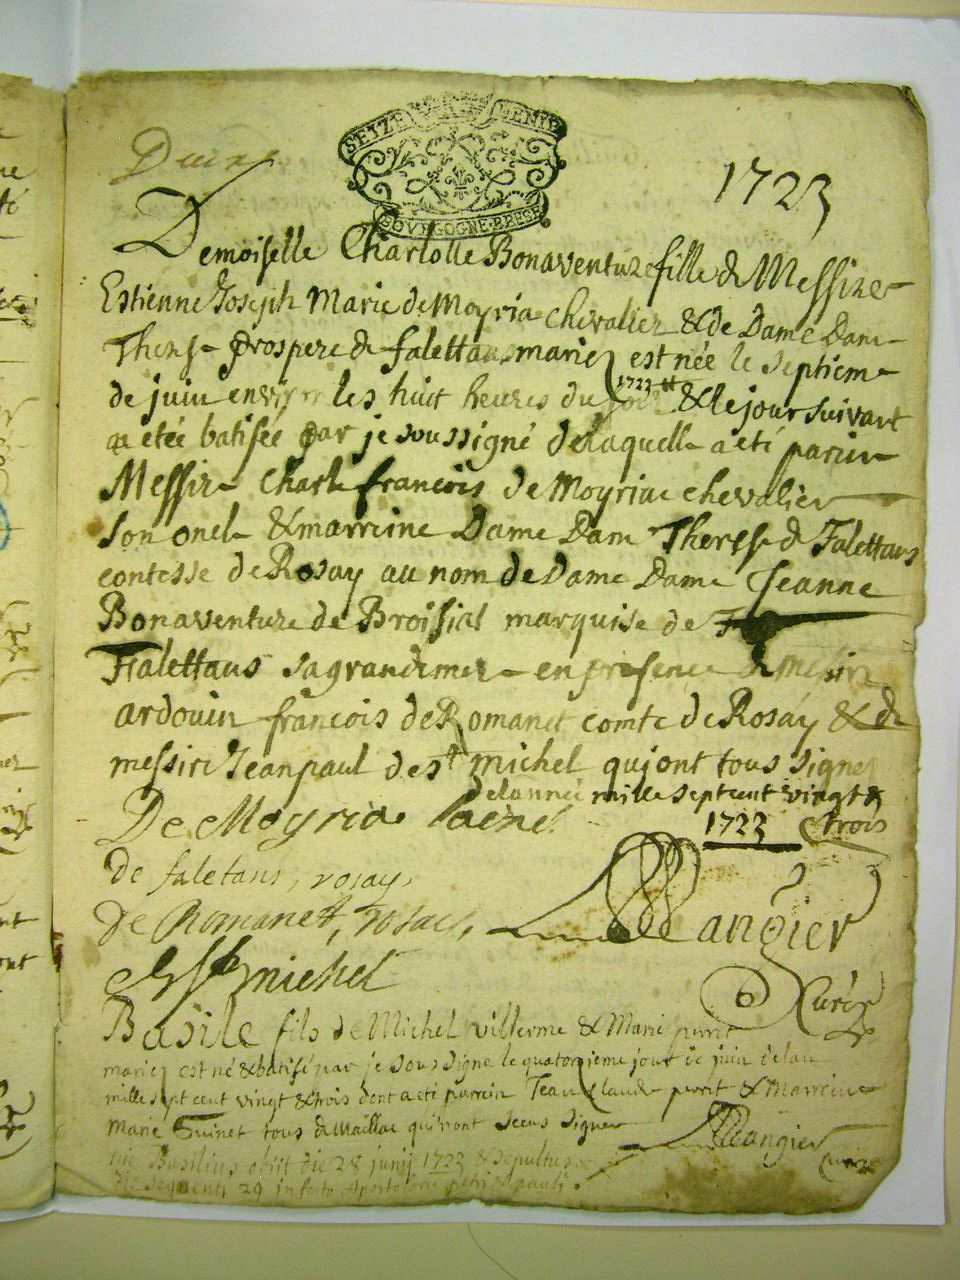 SEIZE DENIE
BOVRGOGNE·BRESE
1723
Demoiselle Charlotte Bonaventure fille de Messire
Estienne Joseph Marie de Moyria chevalier & de Dame Dame
Therese prospere de falettans mariez est née le septieme
de juin environ les huit heures du soir 1723 & le jour suivant
a etée batisée par je soussigné de laquelle a eté parin
Messire Charle françois de Moyria chevalier
son oncle & marreine Dame Dame Therese de Falettans
contesse de Rosay au nom de Dame Dame Jeanne
Bonaventure de Broissial marquise de
Falettans sa grandmere en presence de messire
ardouin françois de Romanet comte de Rosay & de
messire Jean paul de st michel qui ont tous signez
de lannée mille sept cent vingt &
1723 trois
De Moyria lainé
de faletans, rosay,
de Romanet, rosai, Mangier
st michel
Curéz
Basile fils de Michel villerme & Marie perrit
mariez est né & batisé par je sous signé le quatorzieme jour de juin de lan
mille sept cent vingt & trois dont a eté parrein Jean Claude perrit & Marreine
Marie Guinet tous de Maillac qui n'ont sceus signer Mangier
Curéz
hic Basilius obiit die 28 junij 1723 & sepultus
die sequenti 29 in festo Apostolorum petri & pauli.